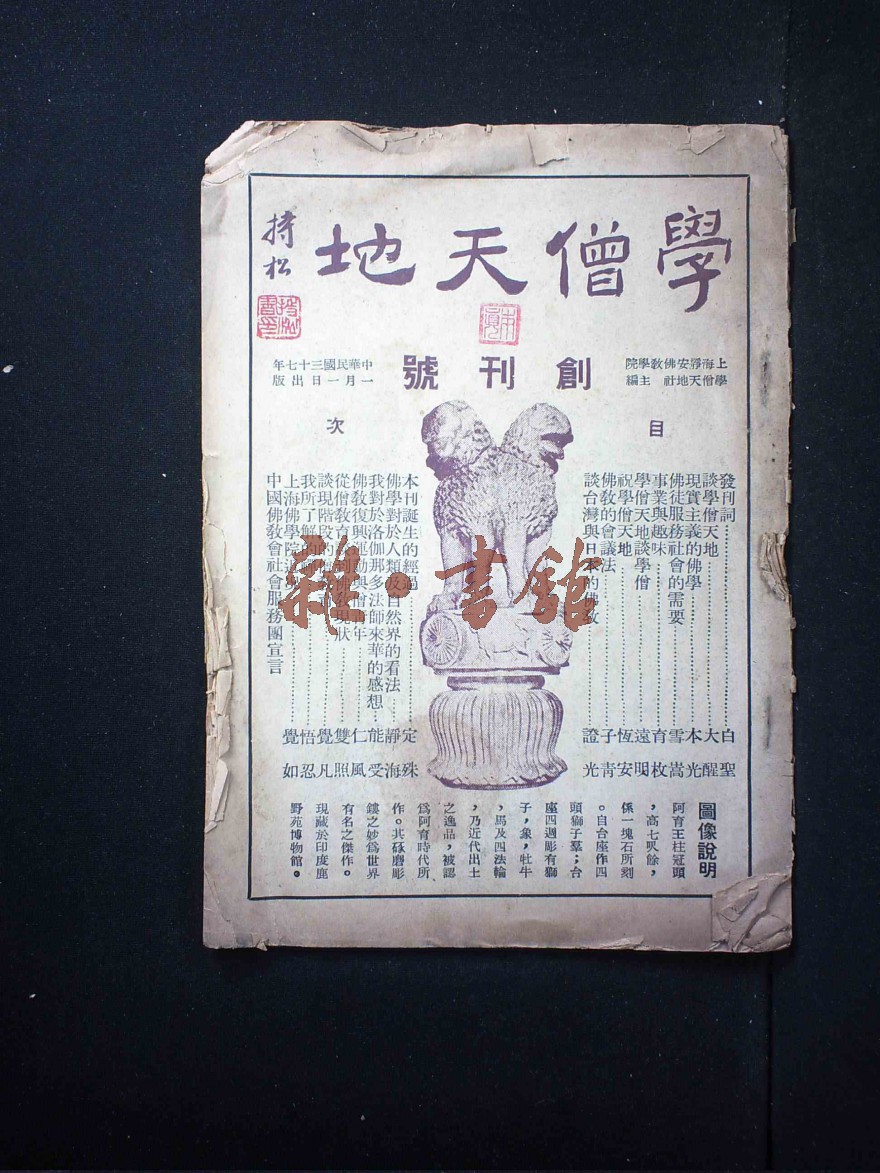 學僧天地
持松
上海靜安佛教學院
學僧天地社 主編
創刊號
中華民國三十七年
一月一日出版
目次
發刊詞……白聖
談學僧天地……大醒
現實主義的佛學……本光
佛徒服務社會的需要……雪嵩
事業與趣味……育枚
學僧天地談學僧……遠明
祝學僧天地……恆安
佛教的會議法……子青
談台灣與日本的佛教……證光
本刊誕生的經過……定殊
佛學對於人類及自然界的看法……靜海
我對於洛伽那多法師來華的感想…能受
佛教復興運動與僧青年……仁風
從僧教育 到佛教現狀……雙照
談現階段的……覺凡
我所了解的……悟忍
上海佛學院……覺如
中國佛教會社會服務團宣言
圖像說明
阿育王柱冠頭
，高七呎餘，
係一塊石所刻
。自台座作四
頭獅子羣；台
座四週彫有獅
子，象，牡牛
，馬及四法輪
，乃近代出土
之逸品，被認
爲阿育時代所
作。其硺磨彫
鏤之妙爲世界
有名之傑作。
現藏於印度鹿
野苑博物館。
雜·書館